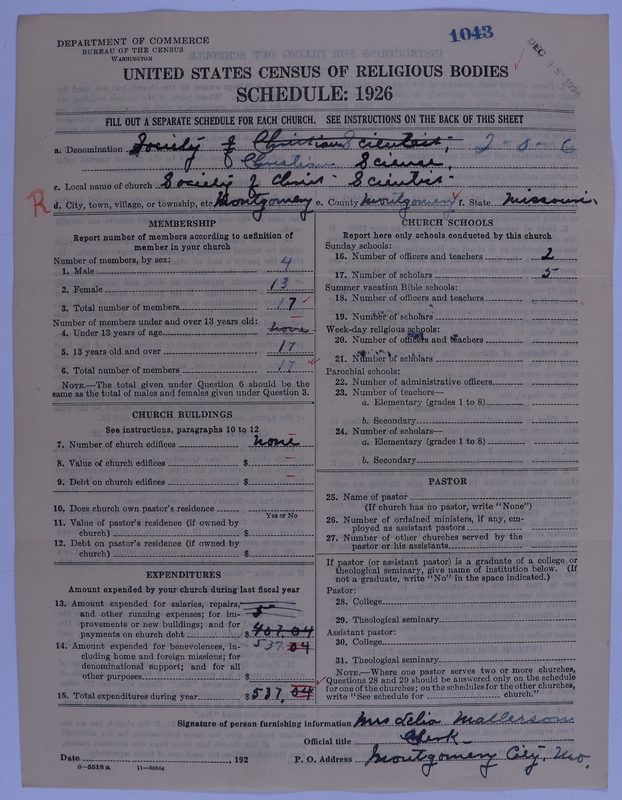 DEPARTMENT OF COMMERCE
BUREAU OF THE CENSUS
WASHINGTON
1043
DEC 15 1926
UNITED STATES CENSUS OF RELIGIOUS BODIES
SCHEDULE: 1926
FILL OUT A SEPARATE SCHEDULE FOR EACH CHURCH. SEE INSTRUCTIONS ON THE BACK OF THIS SHEET
a. Denomination Society of Christian Scientist, 2-0-6
of Christian Science,
c. Local name of church Society of Chris- Scientist-
R d. City, town, village, or township, etc Montgomery e. County Montgomery f. State Missouri.
MEMBERSHIP
Report number of members according to definition of
member in your church
Number of members, by sex:
1. Male 4
2. Female 13
3. Total number of members 17
Number of members under and over 13 years old:
4. Under 13 years of age none
5. 13 years old and over 17
6. Total number of members 17
NOTE.—The total given under Question 6 should be the
same as the total of males and females given under Question 3.
CHURCH BUILDINGS
See instructions, paragraphs 10 to 12
7. Number of church edifices none
8. Value of church edifices $ —
9. Debt on church edifices $ —
10. Does church own pastor's residence
Yes or No
11. Value of pastor's residence (if owned by
church) $
12. Debt on pastor's residence (if owned by
church) $
EXPENDITURES
Amount expended by your church during last fiscal year
13. Amount expended for salaries, repairs,
and other running expenses; for im-
provements or new buildings; and for
payments on church debt $ 407.04
14. Amount expended for benevolences, in- 537.04
cluding home and foreign missions; for
denominational support; and for all
other purposes $
15. Total expenditures during year $ 537.04
CHURCH SCHOOLS
Report here only schools conducted by this church
Sunday schools:
16. Number of officers and teachers 2
17. Number of scholars 5
Summer vacation Bible schools:
18. Number of officers and teachers
19. Number of scholars
Week-day religious schools:
20. Number of officers and teachers
21. Number of scholars
Parochial schools:
22. Number of administrative officers
23. Number of teachers—
a. Elementary (grades 1 to 8)
b. Secondary
24. Number of scholars—
a. Elementary (grades 1 to 8)
b. Secondary
PASTOR
25. Name of pastor
(If church has no pastor, write "None")
26. Number of ordained ministers, if any, em-
ployed as assistant pastors
27. Number of other churches served by the
pastor or his assistants
If pastor (or assistant pastor) is a graduate of a college or
theological seminary, give name of institution below. (If
not a graduate, write "No" in the space indicated.)
Pastor:
28. College
29. Theological seminary
Assistant pastor:
30. College
31. Theological seminary
NOTE.—Where one pastor serves two or more churches,
Questions 28 and 29 should be answered only on the schedule
for one of the churches; on the schedules for the other churches,
write "See schedule for church."
Signature of person furnishing information Mrs Lelia Mallerson
Official title Clerk
Date , 192 P. O. Address Montgomery City, Mo.
8—5518 a 11—9054g